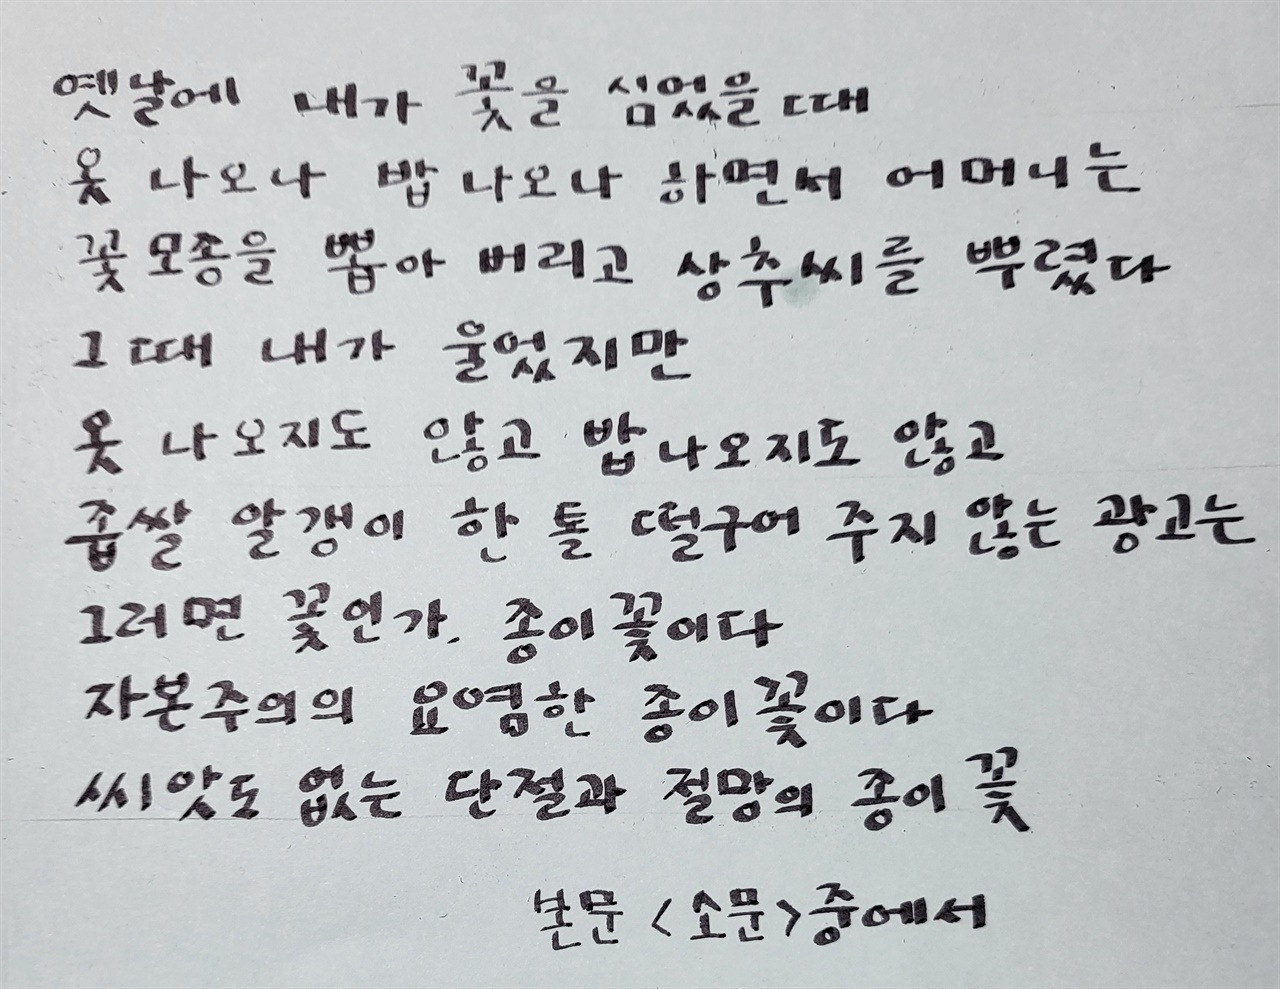 옛날에 내가 꽃을 심었을 때
옷 나오나 밥 나오나 하면서 어머니는
꽃모종을 뽑아 버리고 상추씨를 뿌렸다
그때 내가 울었지만
옷 나오지도 않고 밥 나오지도 않고
좁쌀 알갱이 한 톨 떨구어 주지 않는 광고는
그러면 꽃인가. 종이꽃이다
자본주의의 요염한 종이꽃이다
씨앗도 없는 단절과 절망의 종이꽃
본문 <소문>중에서